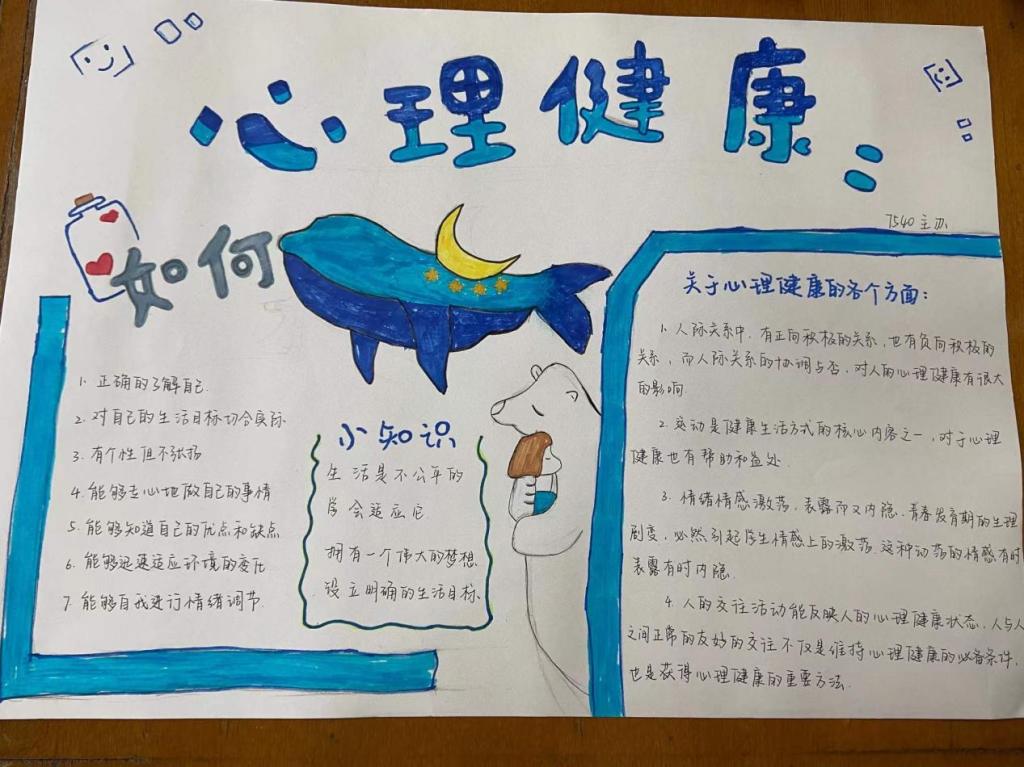 心理健康
7540主办
如何
1. 正确的了解自己.
2. 对自己的生活目标切合实际
3. 有个性但不张扬
4. 能够走心地做自己的事情
5. 能够知道自己的优点和缺点
6. 能够迅速适应环境的变化
7. 能够自我进行情绪调节.
小知识
生活是不公平的
学会适应它
拥有一个伟大的梦想
设立明确的生活目标
关于心理健康的各个方面:
1. 人际关系中, 有正向积极的关系, 也有负向积极的
关系, 而人际关系的协调与否, 对人的心理健康有很大
的影响.
2. 运动是健康生活方式的核心内容之一, 对于心理
健康也有帮助和益处.
3. 情绪情感激荡, 表露而又内隐. 青春发育期的生理
剧变, 必然引起学生情感上的激荡. 这种动荡的情感有时
表露有时内隐.
4. 人的交往活动能反映人的心理健康状态, 人与人
之间正常的友好的交往不仅是维持心理健康的必备条件,
也是获得心理健康的重要方法.